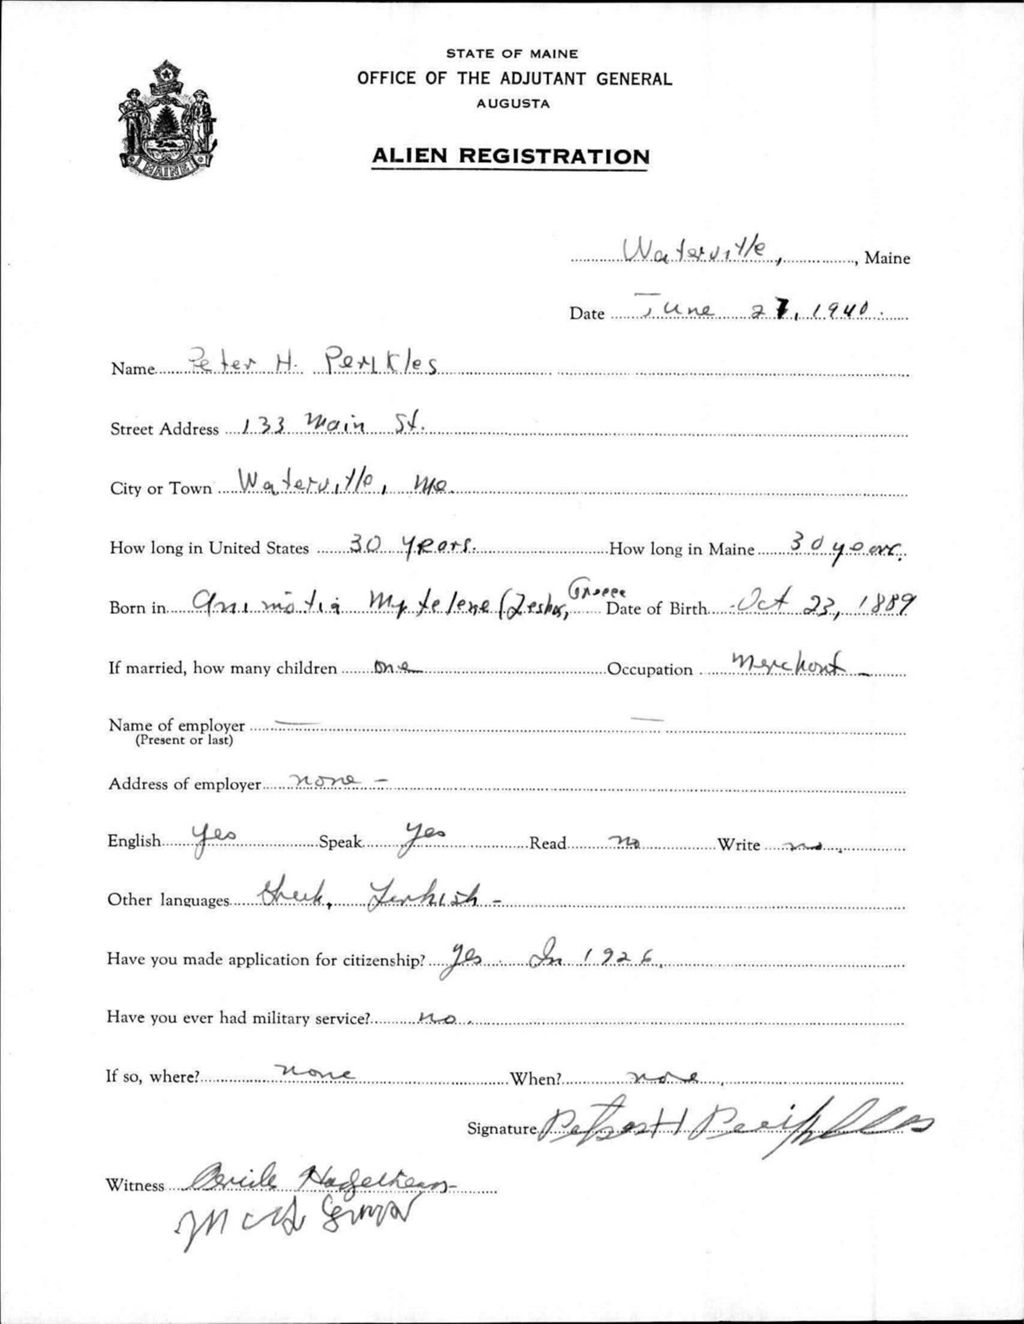 STATE OF MAINE
OFFICE OF THE ADJUTANT GENERAL
AUGUSTA
ALIEN REGISTRATION
MAINE
Waterville, , Maine
Date June 27, 1940.
Name Peter H. Perikles
Street Address 133 Main St.
City or Town Waterville, Me.
How long in United States 30 years. How long in Maine 30 years.
Born in Mytelene ( Greece Date of Birth Oct 23, 1889
If married, how many children one Occupation Merchant
Name of employer — —
(Present or last)
Address of employer none –
English Yes Speak Yes Read no Write no.
Other languages Greek, Turkish -
Have you made application for citizenship? Yes. In 1926.
Have you ever had military service? no.
If so, where? none When? none
Signature Peter H Perikles
Witness